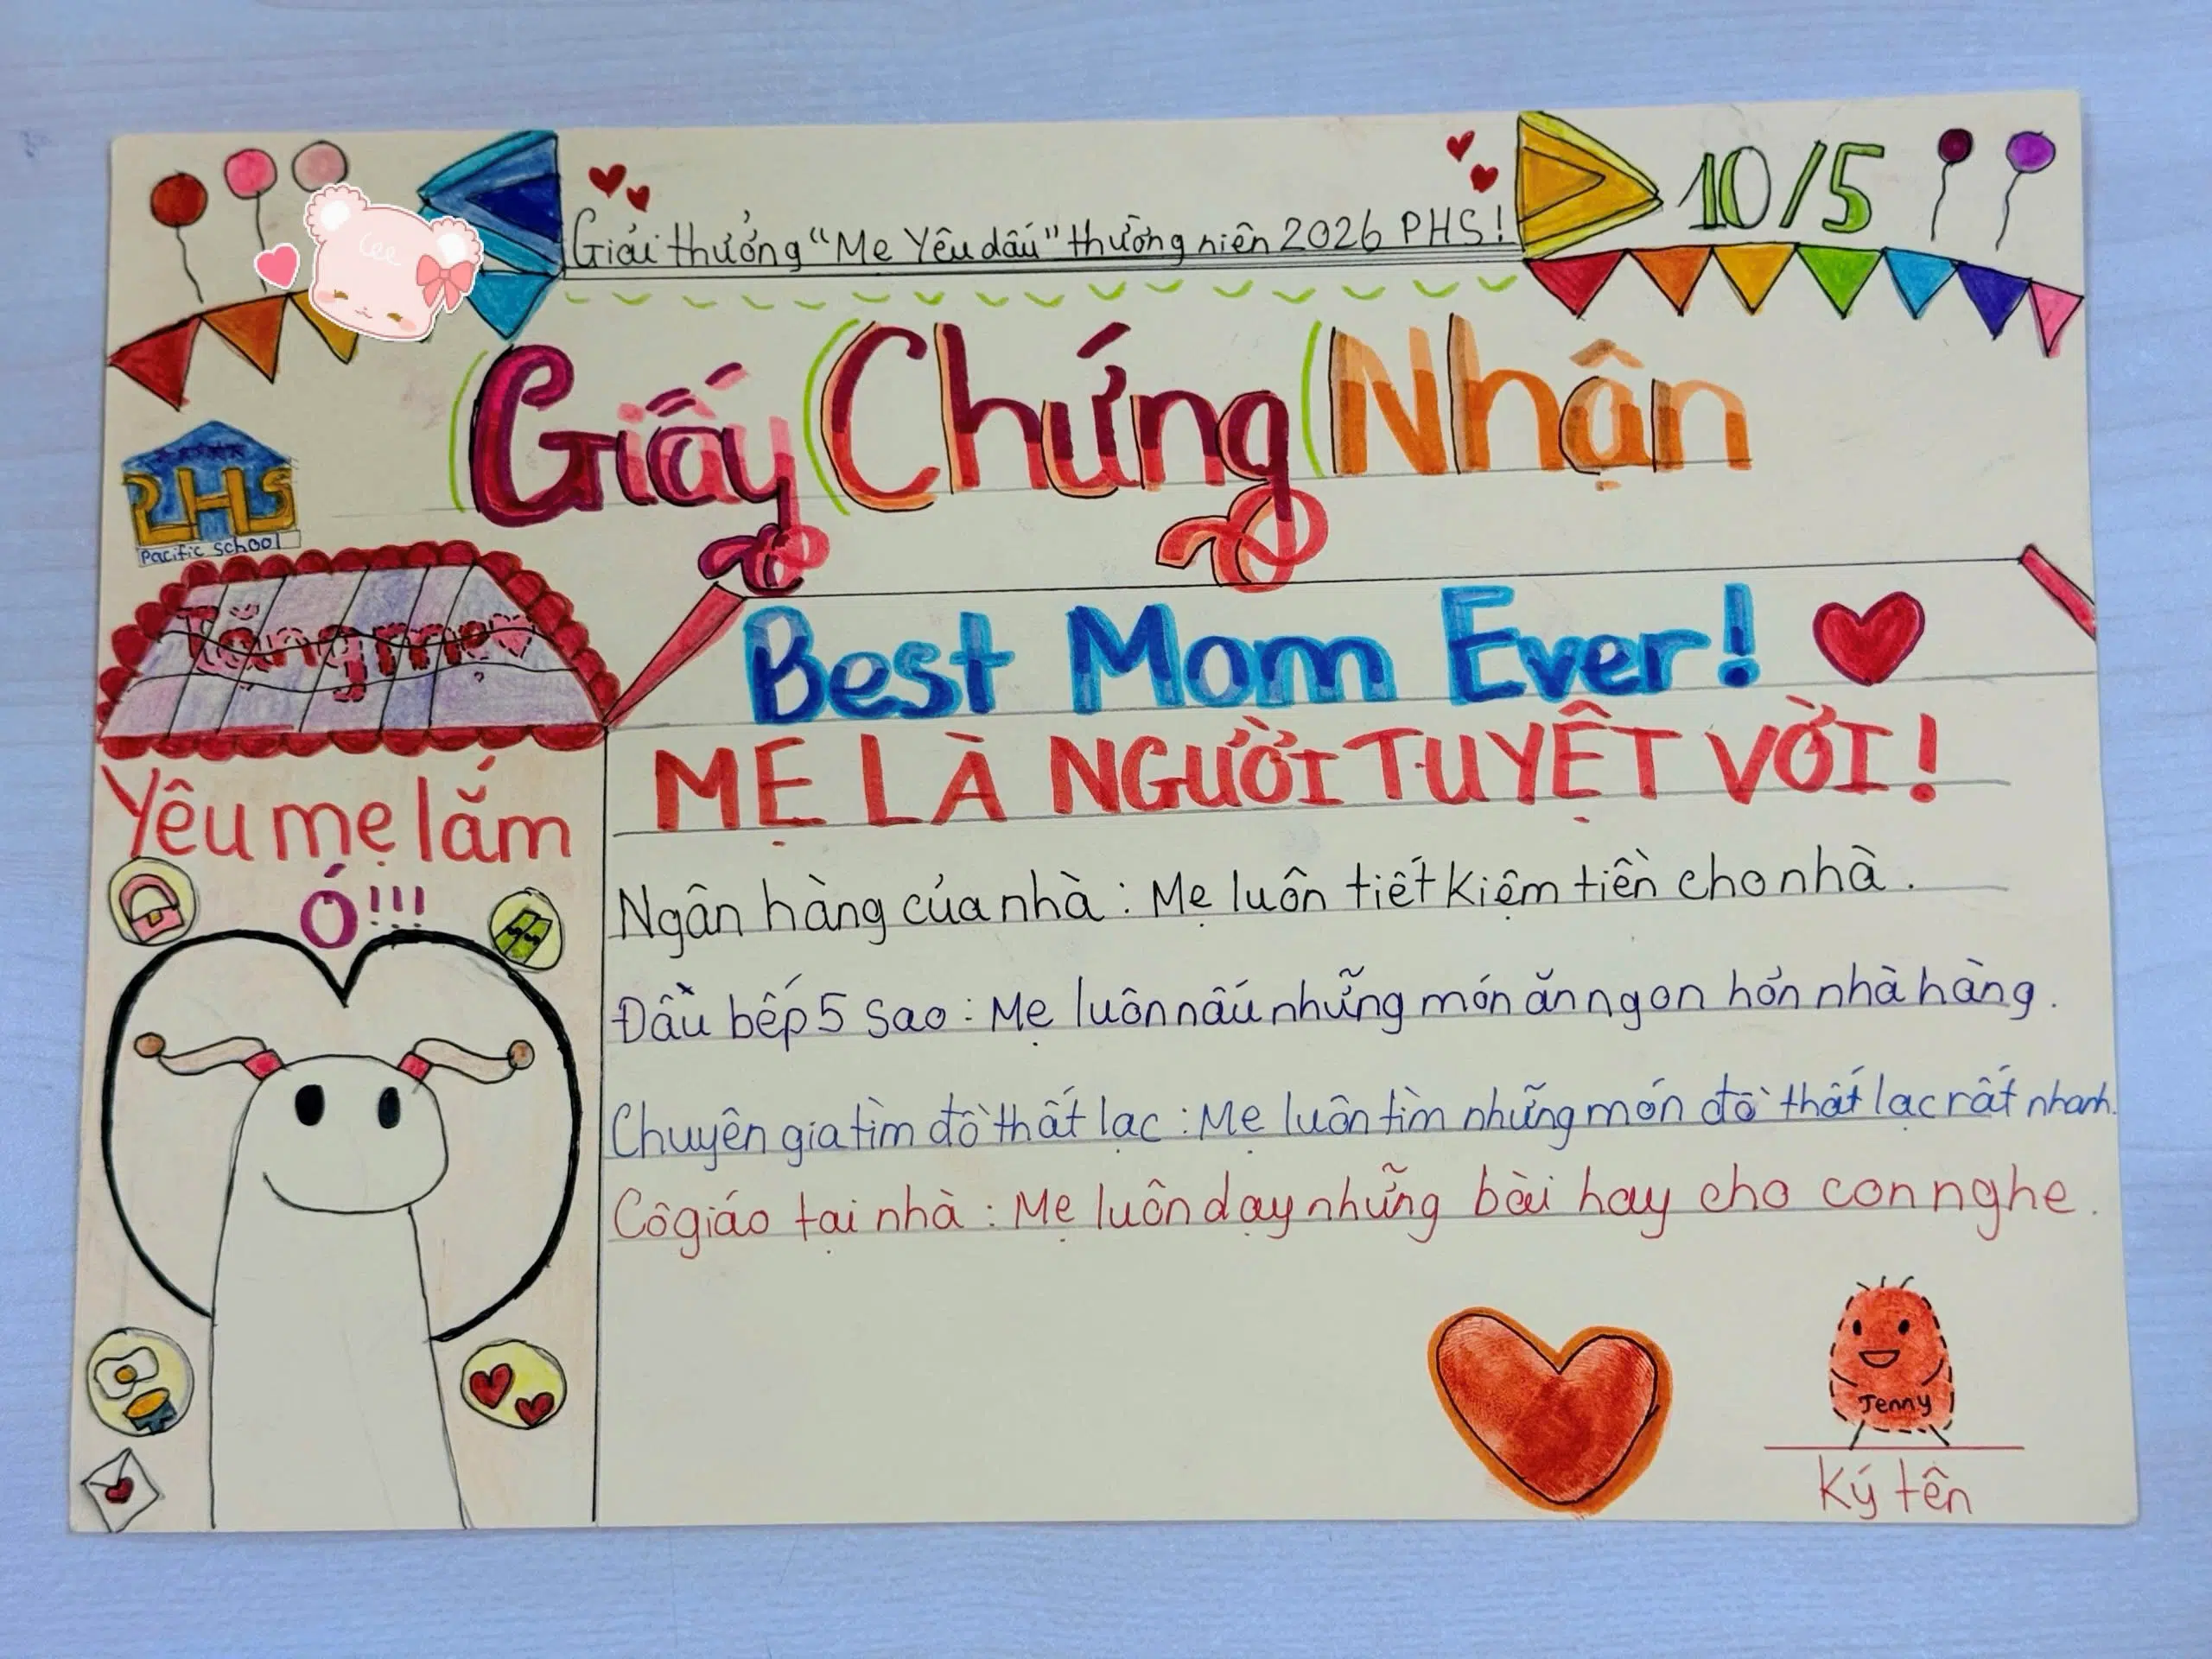 Giải thưởng "Mẹ Yêu dấu" thường niên 2026 PHS!
10/5
Cee
Giấy Chứng Nhận
PHS
Pacific School
Tặng mẹ
Best Mom Ever!
MẸ LÀ NGƯỜI TUYỆT VỜI!
Yêu mẹ lắm
Ó!!!
Ngân hàng của nhà : Mẹ luôn tiết kiệm tiền cho nhà.
Đầu bếp 5 sao : Mẹ luôn nấu những món ăn ngon hơn nhà hàng.
Chuyên gia tìm đồ thất lạc : Mẹ luôn tìm những món đồ thất lạc rất nhanh.
Cô giáo tại nhà : Mẹ luôn dạy những bài hay cho con nghe.
Jenny
Ký tên